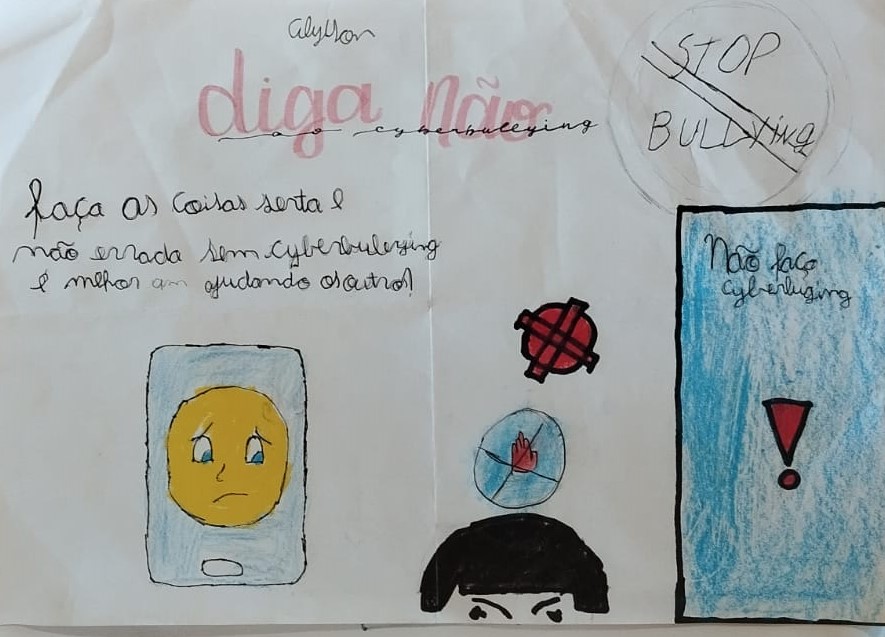 Alyllon
diga não
ao cyberbullying
STOP
BULLYing
faça as coisas serta e
não errada sem cyberbulleying
é melhor am ajudando osoutro!
Não faço
cyberluging